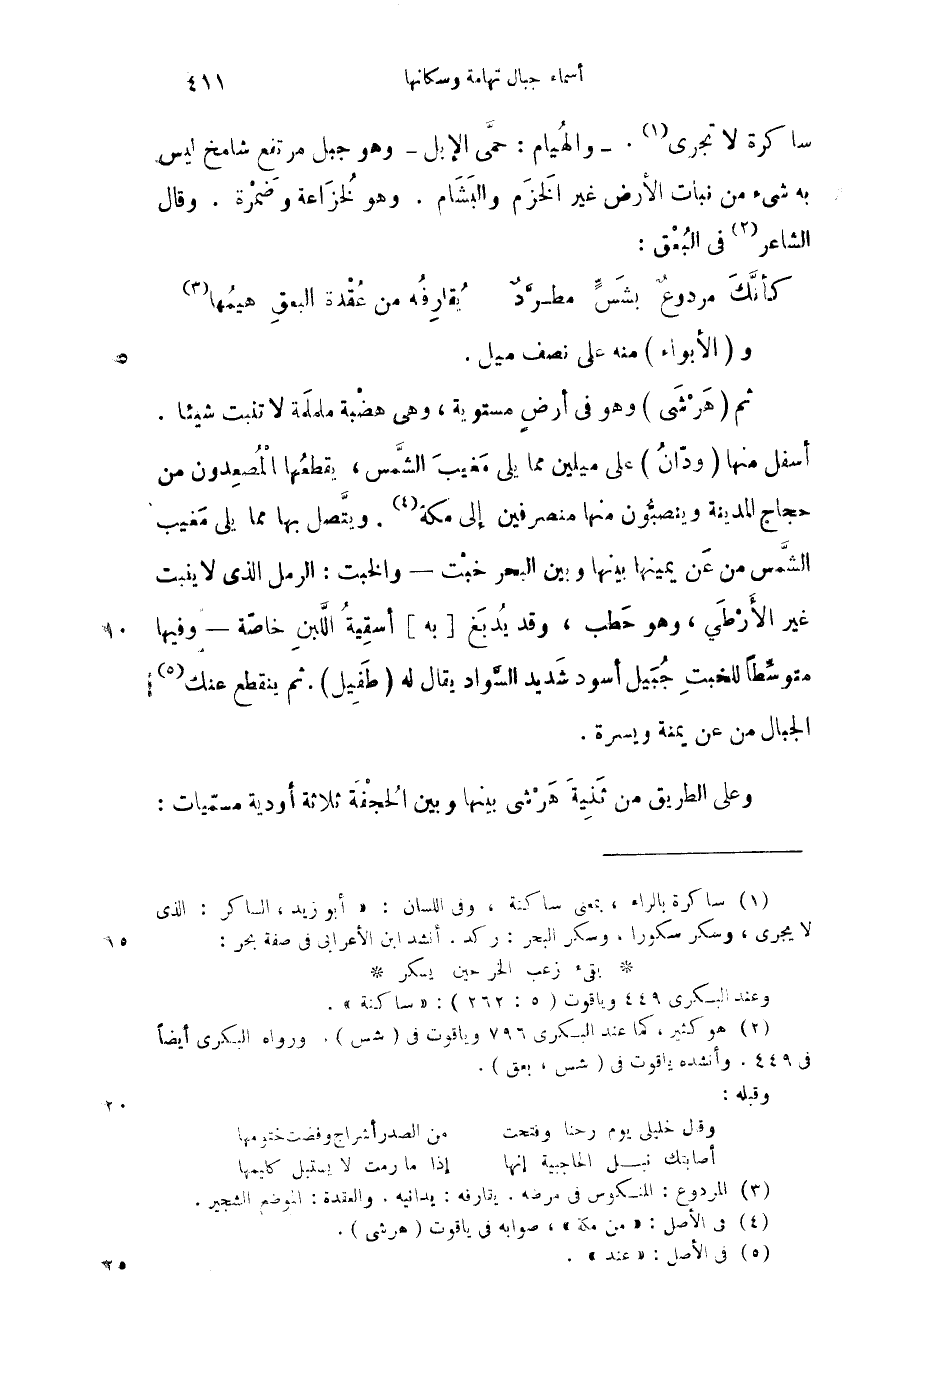 أسماء جبال تهامة وسكانها ٤١١
ساكرة لا تجرى(١) . ــ والهُيام : حمَّى الإبل ــ وهو جبل مرتفع شامخ ليس
به شىء من نبات الأرض غير الخَزَم والبَشَام . وهو لخُزَاعة وضَمْرة . وقال
الشاعر(٢) فى البُعْق :
كأنَّكَ مردوعٌ بشَسٍّ مطرَّدٌ يُقارِفُه من عُقْدة البعقِ هيمُها(٣)
و ( الأبواء ) منه على نصف ميل . ٥
ثم ( هَرْشَى ) وهو فى أرضٍ مستوية ، وهى هضْبة ململَمة لا تنبت شيئا .
أسفل منها ( ودّانُ ) على ميلين مما يلى مَغيبَ الشَّمس ، يقطعُها الْمُصعِدون من
حجاج المدينة وينصبُّون منها منصرفين إلى مكة(٤) . ويتَّصل بها مما يلى مَغيب
الشَّمس من عَن يمينها بينها وبين البحر خبْت — والخبت : الرمل الذى لا ينبت
غير الأَرْطَي ، وهو حَطب ، وقد يُدبَغ [ به ] أسقيةُ اللَّبنِ خاصّة — وفيها ١٠
متوسِّطاً للخبتِ جُبَيل أسود شديد السَّواد يقال له ( طَفِيل ) . ثم ينقطع عنك(٥)
الجبال من عن يمنة ويسرة .
وعلى الطريق من ثَنِيةَ هَرْشى بينها وبين الجُحْفَة ثلاثة أودية مسمّيات :
(١) ساكرة بالراء ، بمعنى ساكنة ، وفى اللسان : « أبو زيد ، الساكر : الذى
لا يجرى ، وسكر سكورا . وسكر البحر : ركد . أنشد ابن الأعرابى فى صفة بحر : ١٥
* يقىء زعب الحر حين يسكر *
وعند البكرى ٤٤٩ وياقوت ( ٥ : ٢٦٢ ) : « ساكنة » .
(٢) هو كثير ، كما عند البكرى ٧٩٦ وياقوت فى ( شس ) . ورواه البكرى أيضاً
فى ٤٤٩ . وأنشده ياقوت فى ( شس ، بعق ) .
وقبله : ٢٠
وقال خليلى يوم رحنا وفتحت من الصدر أشراج وفضت ختومها
أصابتك نبل الحاجبية إنها إذا ما رمت لا يستبل كليمها
(٣) المردوع : المنكوس فى مرضه . يقارفه : يدانيه . والعقدة : الموضع الشجير .
(٤) فى الأصل : « من مكة » ، صوابه فى ياقوت ( هرشى ) .
(٥) فى الأصل : « عند » . ٢٥